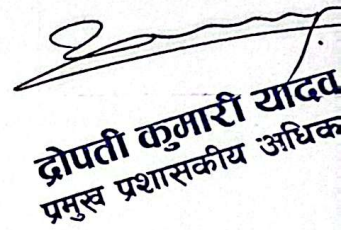 द्रोपती कुमारी यादव
प्रमुख प्रशासकीय अधिक